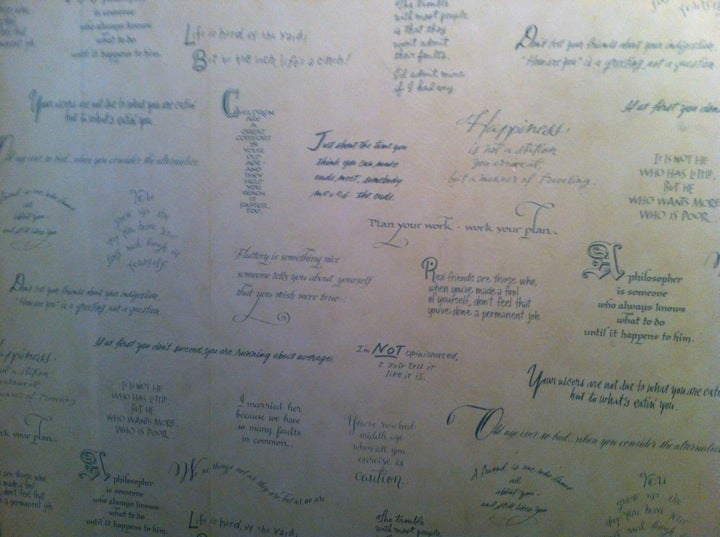 who always knows
what to do
until it happens to him.
Life is hard, by the yard;
But by the inch, life's a cinch!
The trouble
with most people
is that they
won't admit
their faults.
I'd admit mine
if I had any.
Don't tell your friends about your indigestion.
"How are you" is a greeting, not a question.
Your ulcers are not due to what you are eatin'
but to what's eatin' you.
CHILDREN
ARE
A
GREAT
COMFORT
IN
YOUR
OLD
AGE
AND
THEY
HELP
YOU
REACH
IT
FASTER,
TOO.
Just about the time you
think you can make
ends meet, somebody
moves the ends.
Happiness:
is not a station
you arrive at,
but a manner of traveling.
If at first you don
IT IS NOT HE
WHO HAS LITTLE,
BUT HE
WHO WANTS MORE,
WHO IS POOR.
Old age isn't so bad.. when you consider the alternative.
friend, is one who knows
all
about you
and still likes you
You
grow up the
day you have your
first real laugh at
Yourself
Plan your work - work your plan..
Flattery is something nice
someone tells you about yourself
that you wish were true.
Real friends are those who,
when you've made a fool
of yourself, don't feel that
you've done a permanent job.
A philosopher
is someone
who always knows
what to do
until it happens to him.
Don't tell your friends about your indigestion.
"How are you" is a greeting, not a question.
If at first you don't succeed, you are running about average.
I'm NOT opinionated,
I just tell it
like it is.
Your ulcers are not due to what you are eatin'
but to what's eatin' you.
ppiness:
is not a station
arrive at,
manner of traveling
IT IS NOT HE
WHO HAS LITTLE,
BUT HE
WHO WANTS MORE,
WHO IS POOR.
I married her
because we have
so many faults
in common..
You've reached
middle age
when all you
exercise is
caution.
Old age isn't so bad.. when you consider the alternative
rk your plan..
A philosopher
is someone
who always knows
what to do
until it happens to him.
ds are those who,
made a fool
don't feel that
a permanent job.
We see things not as they are but as we are.
A friend, is one who knows
all
about you
and still likes you
You
grow up the
day you have your
first real laugh at
Life is hard, by the yard;
The trouble
with most people